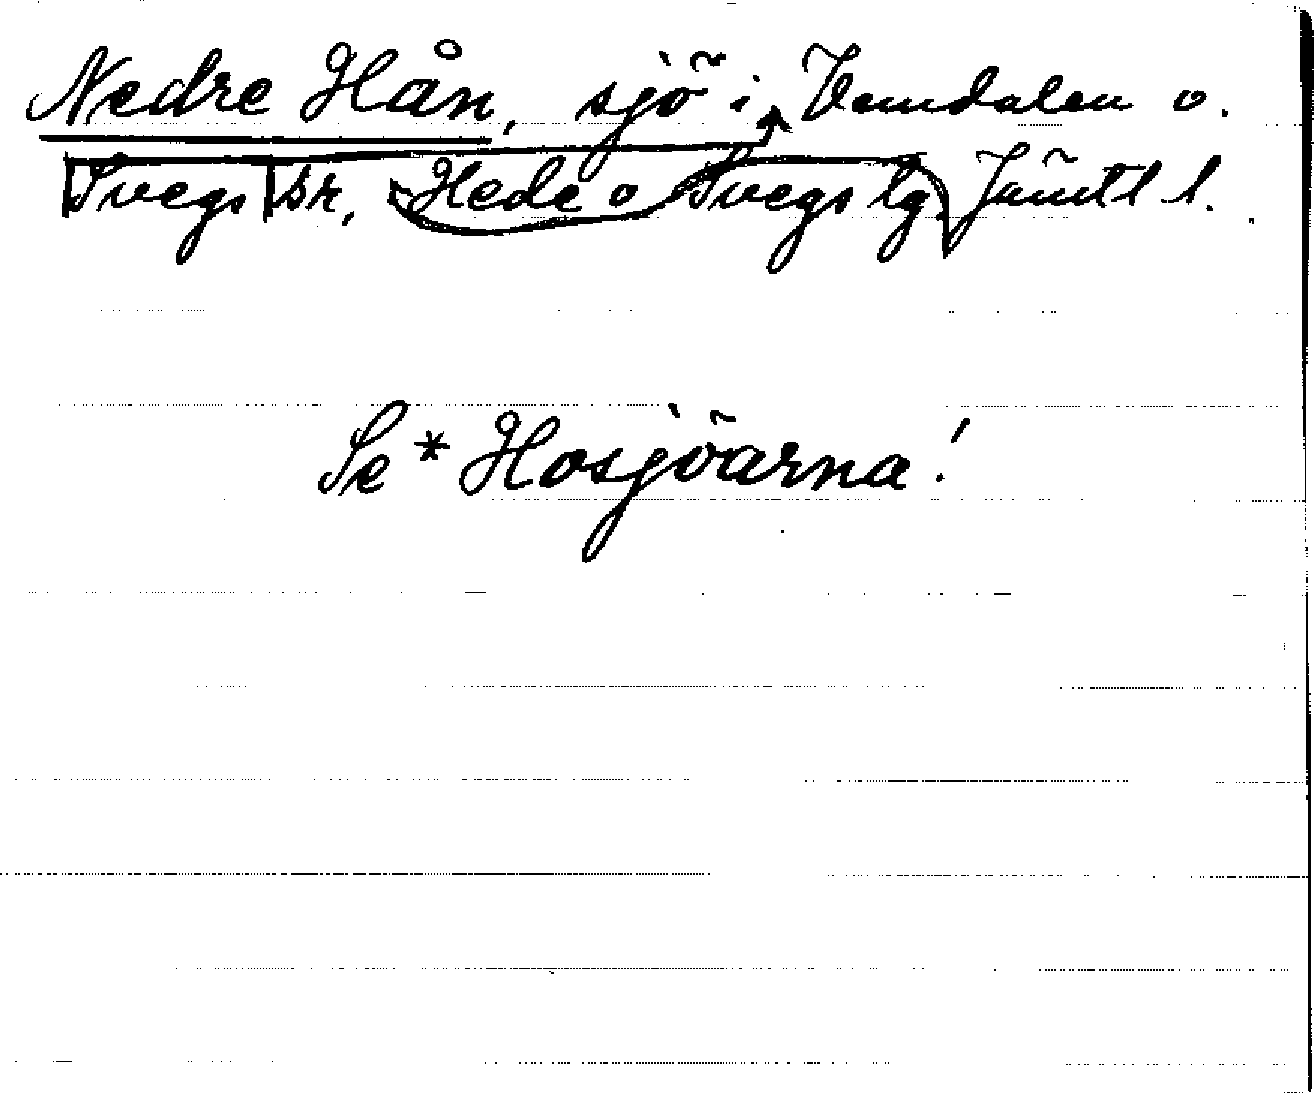 Nedre Hån, sjö i Vemdalen o.
Svegs sr, Hede o Svegs tg Jämtl l.
Se * Hosjöarna!